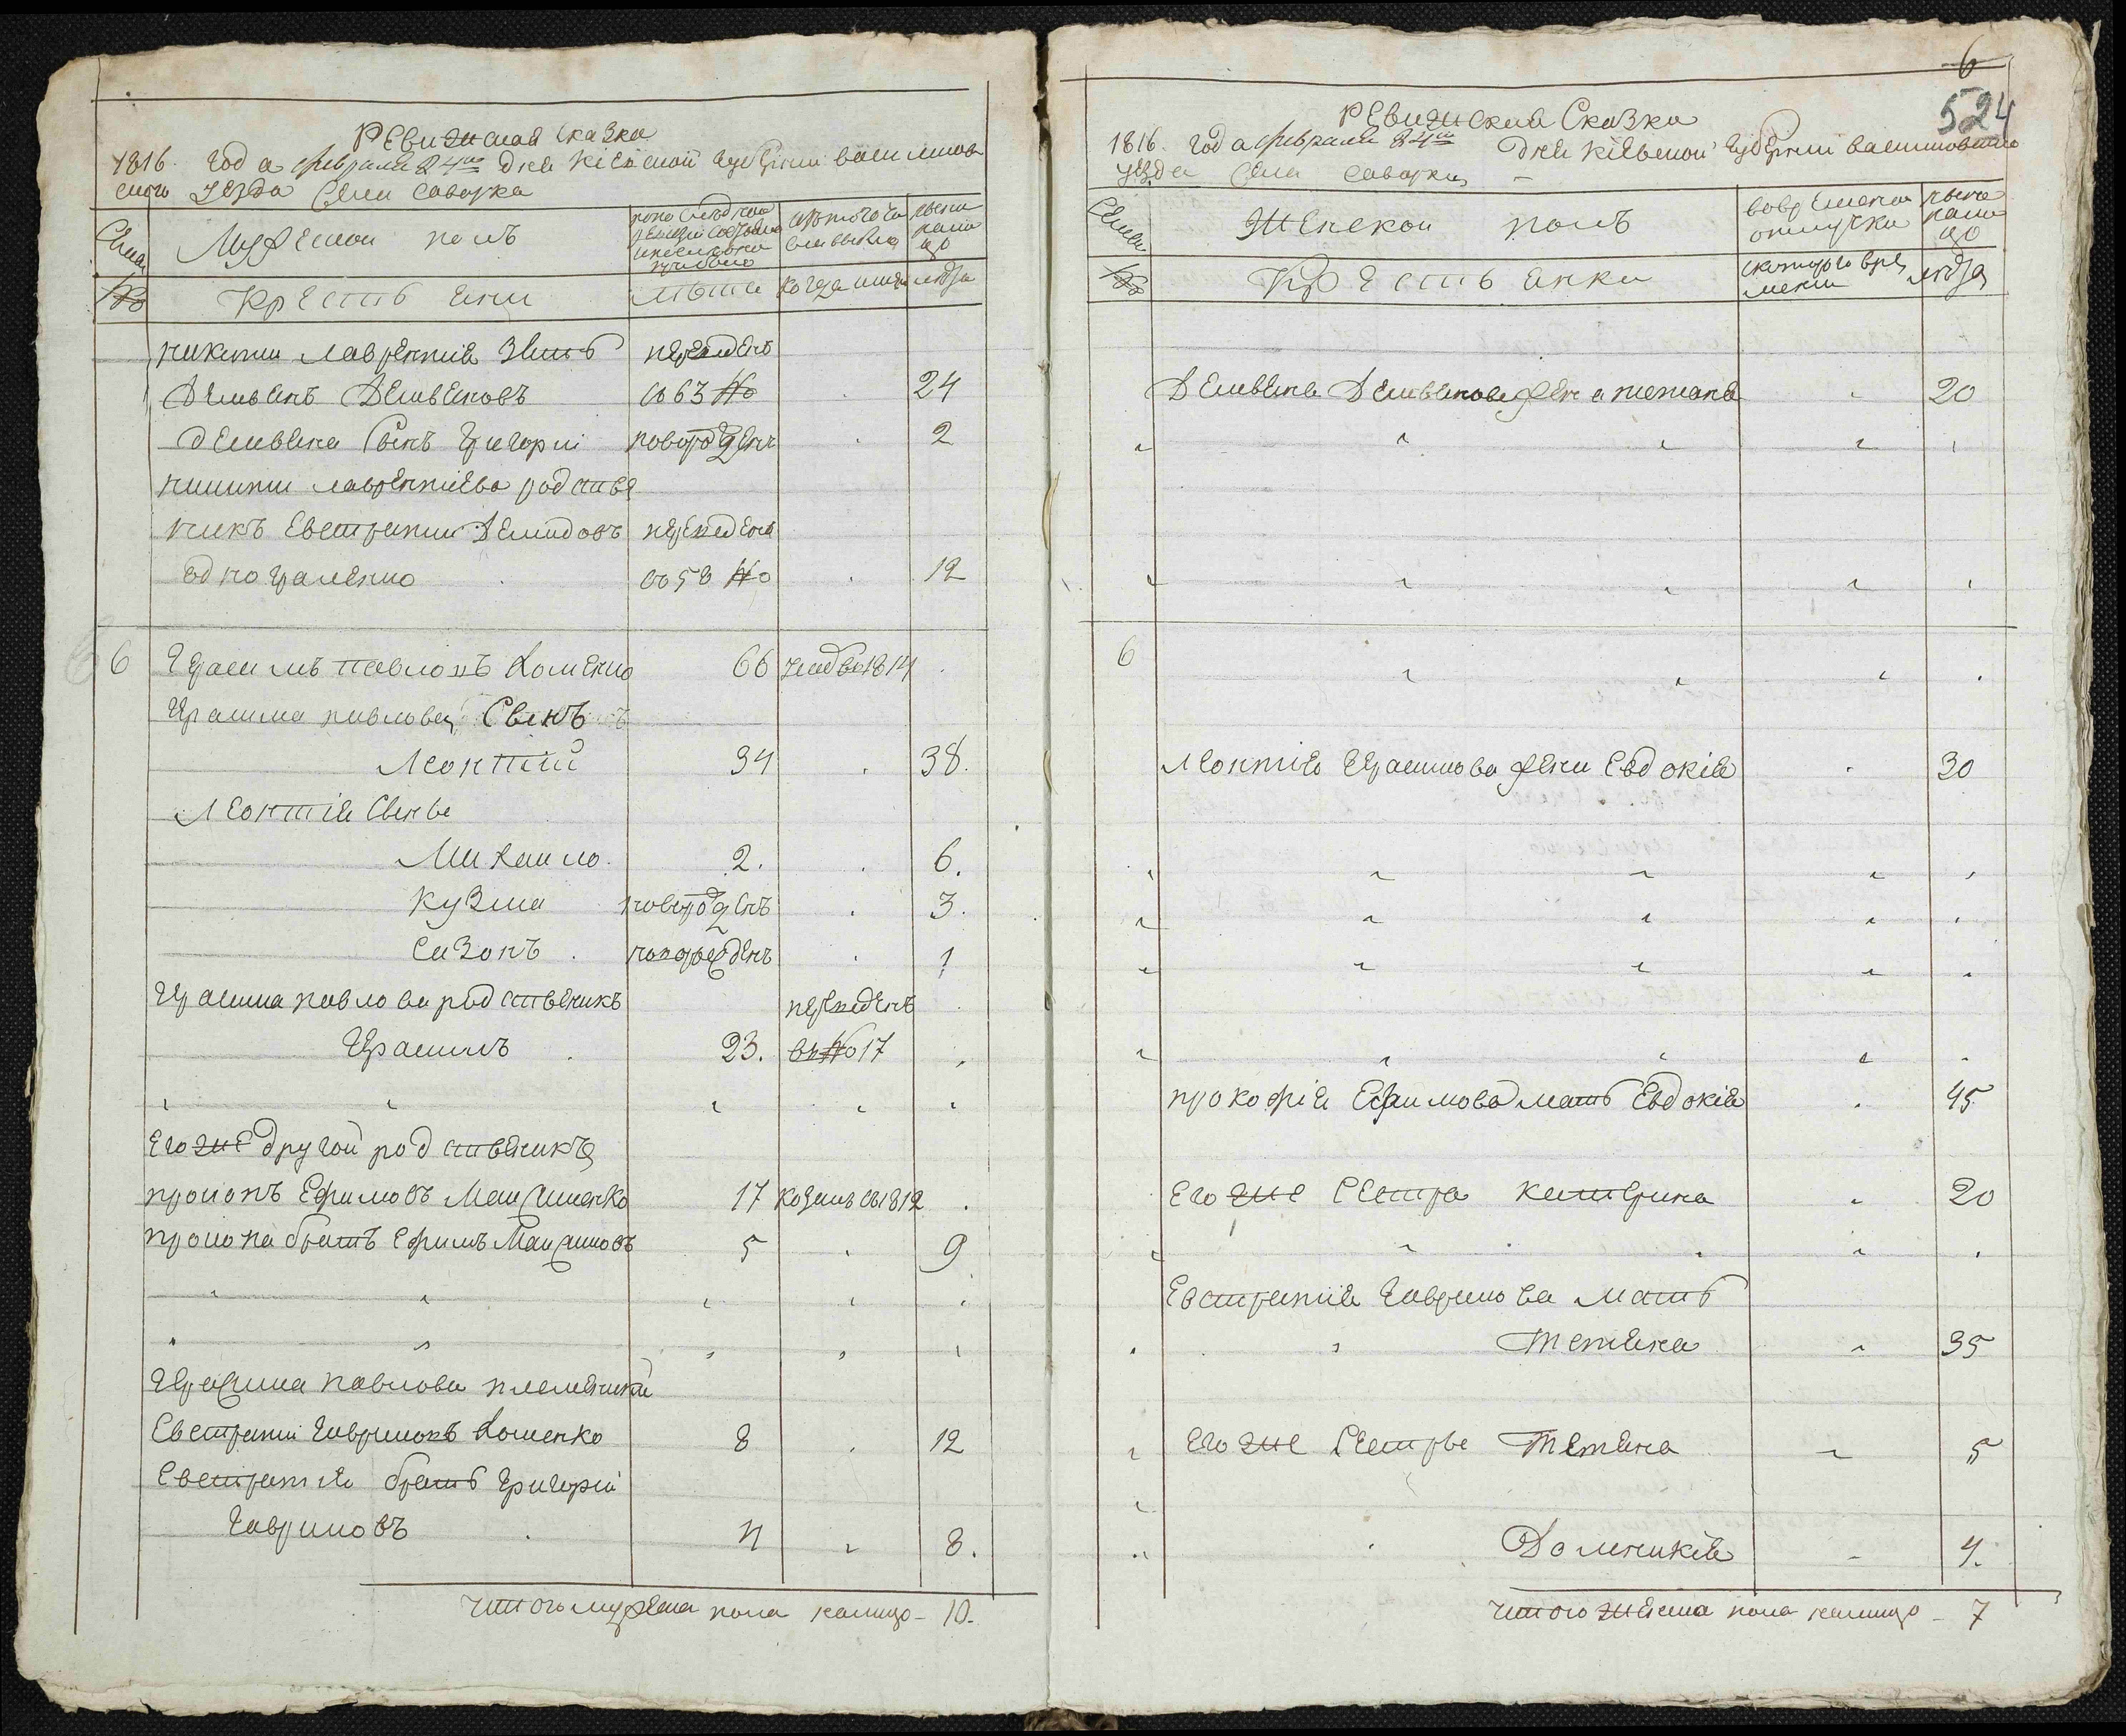 Ревижская Сказка
1816. года февраля 24го дня Кіевской губернии василков
ского уезда Села Саварка
Семьи Мужеской полъ по последней ревизіи состояло и после оной прибыло изъ того числа выбыло ныне налицо
№ Крестьяни Лѣта когда именно лѣта
никити лаврентиѣ Зять переведенъ
Демьянъ Демьяновъ со 63 № 24
демьяна Сынъ Григорій новорожденъ 2
никити лаврентиева родствѣ
никъ Евстратий Демидовъ переведенъ
со 58 № 12
6 Герасимъ павловъ 66 умер во 1814
Герасима павлова Сынъ
Леонтий 34 38.
Леонтия Сыны
Михаило. 2. 6.
Кузма новорожденъ 3.
Сазонъ новорожденъ 1
Герасима павлова родственикъ переведенъ
Герасимъ 23. въ № 17
Его же другой родственикъ
прокопъ Ефимовъ Максименко 17 1812
прокопа братъ Ефимъ Максимовъ 5 9
Герасима павлова племеники
Евстратий Гавриловъ 8 12
Евстратия братъ Григорій
Гавриловъ 4 8.
Итого мужеска пола налицо - 10.
6
524
Ревижская Сказка
1816. года февраля 24го дня Кіевской губернии василковского
уезда Села Саварки
Семьи Женской полъ во временной отлучки ныне налицо
№ Крестьянки с которого времени лѣта
Демьяна Демьянова жена татяна 20
6
Леонтия Герасимова жена Евдокія 30
прокофія Ефимова мать Евдокія 45
Его же Сестра Катерина 20
Евстратия Гаврилова мать
Тетяна 35
Его же Сестры Тетяна 5
Доминикія 4.
Итого женска пола налицо - 7